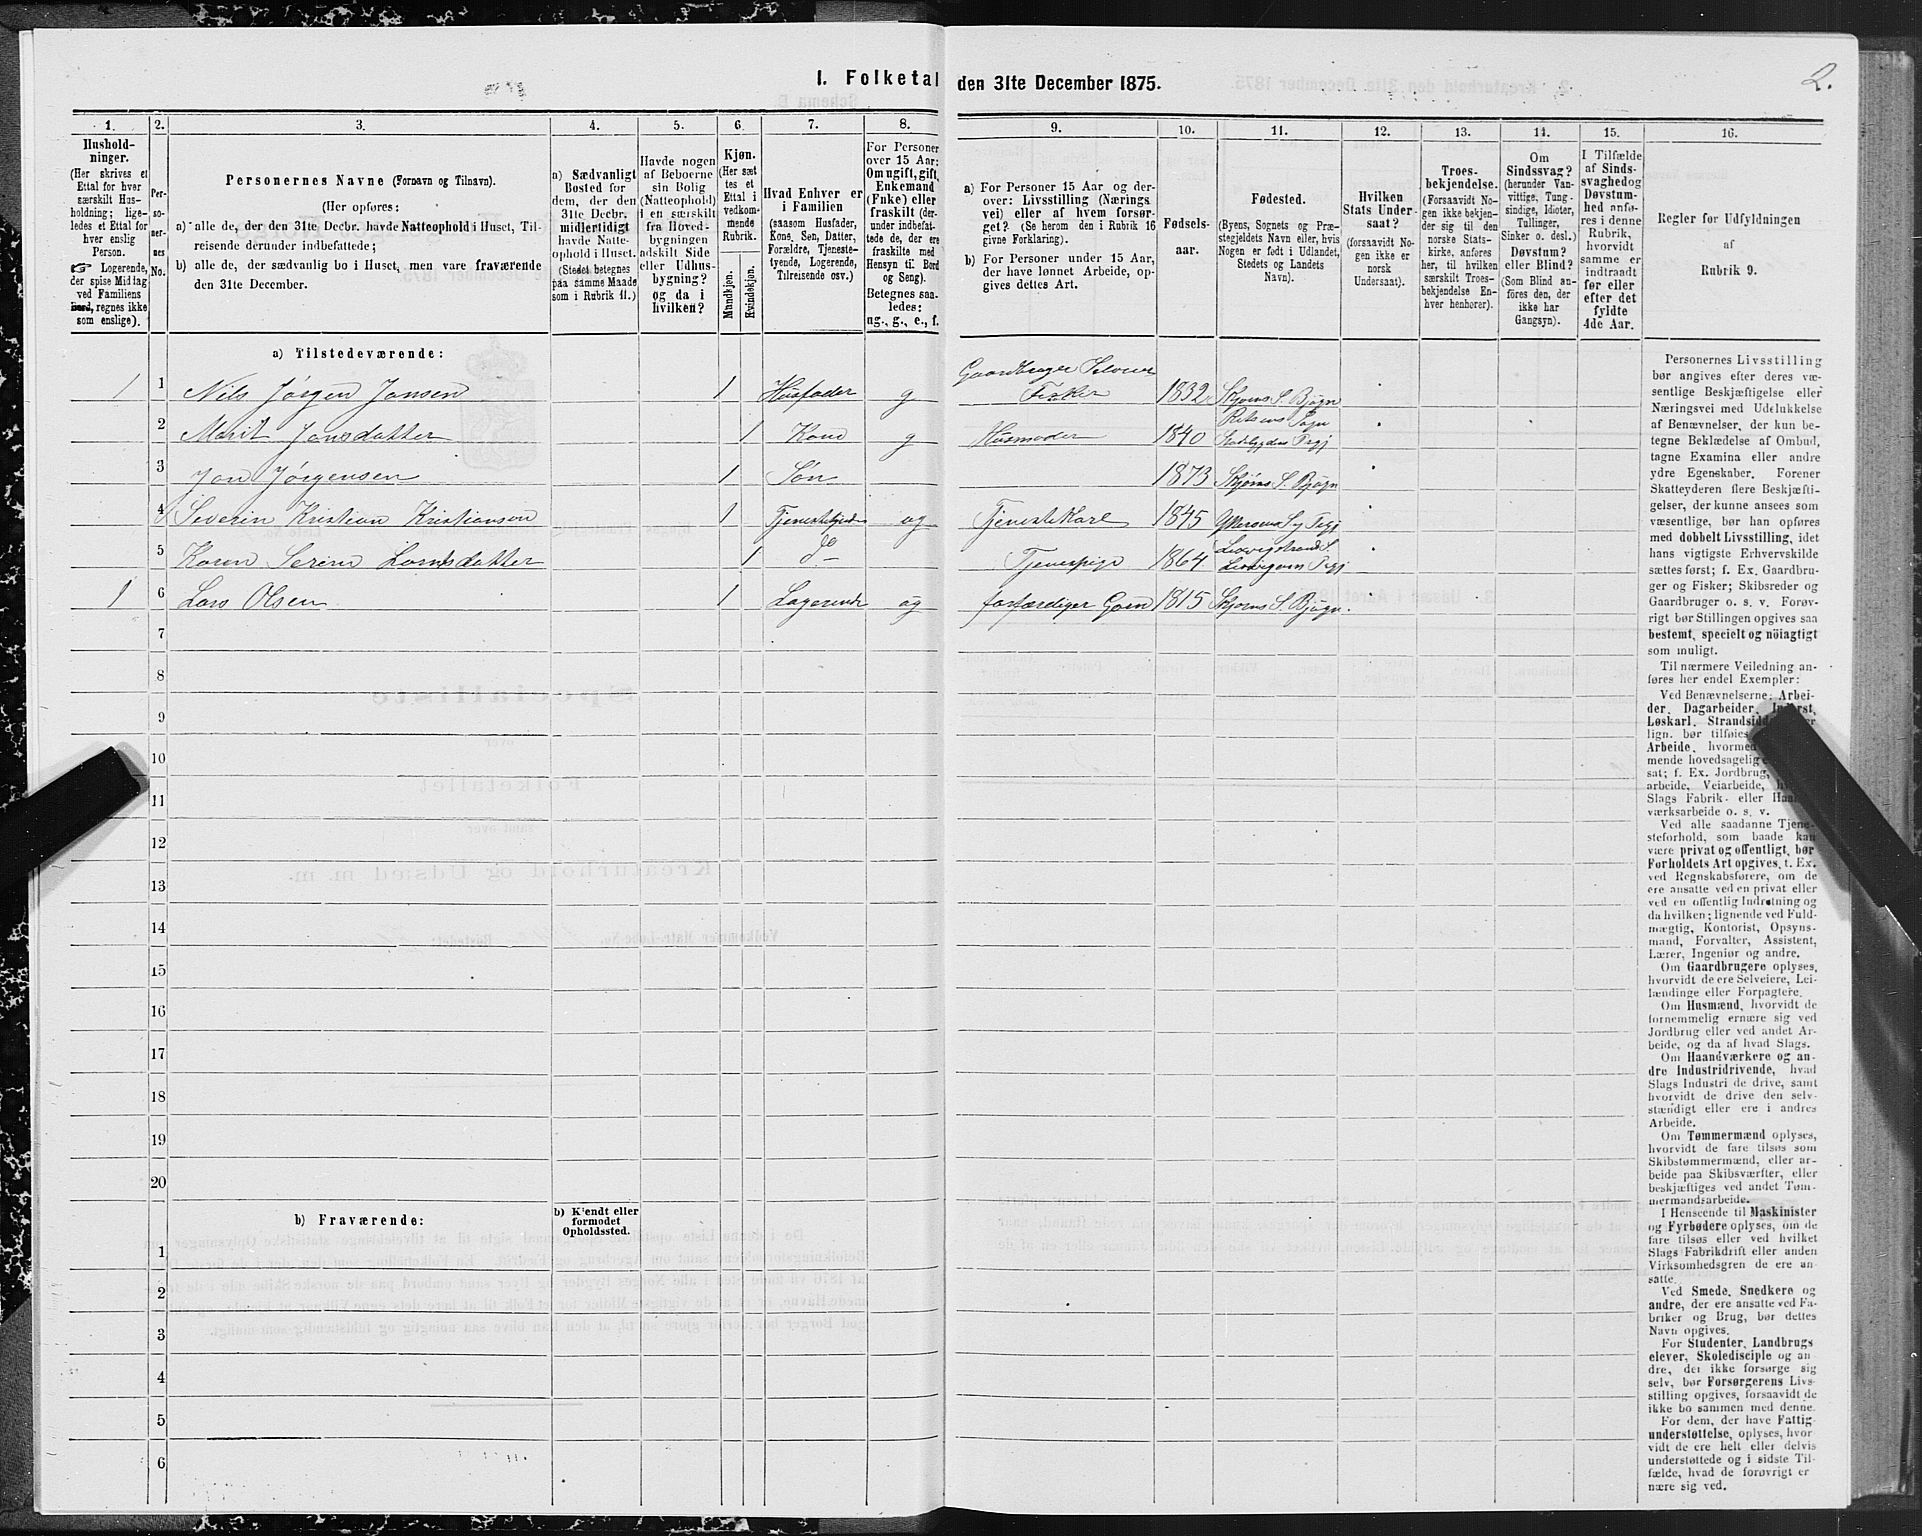 I. Folketal den 31te December 1875.
2.
1.
Hushold-
ninger.
(Her skrives et
Ettal for hver
særskilt Hus-
holdning; lige-
ledes et Ettal for
hver enslig
Person.
☞ Logerende,
der spise Middag
ved Familiens
Bord, regnes ikke
som enslige).
2.
Per-
so-
ner-
nes
No.
3.
Personernes Navne (Fornavn og Tilnavn).
(Her opføres:
a) alle de, der den 31te Decbr. havde Natteophold i Huset, Til-
reisende derunder indbefattede;
b) alle de, der sædvanlig bo i Huset, men vare fraværende
den 31te December.
4.
a) Sædvanligt
Bosted for
dem, der den
31te Decbr.
midlertidigt
havde Natte-
ophold i Huset.
(Stedet betegnes
paa samme Maade
som i Rubrik 11.)
5.
Havde nogen
af Beboerne
sin Bolig
(Natteophold)
i en særskilt
fra Hoved-
bygningen
adskilt Side
eller Udhus-
bygning?
og da i
hvilken?
6.
Kjøn.
(Her sæt
tes et
Ettal i
vedkom-
mende
Rubrik.
Mandkjøn.
Kvindekjøn.
7.
Hvad Enhver er
i Familien
(saasom Husfader,
Kone, Søn, Datter,
Forældre, Tjeneste-
tyende, Logerende,
Tilreisende osv.)
8.
For Personer
over 15 Aar:
Om ugift, gift,
Enkemand
(Enke) eller
fraskilt (der-
under indbefat-
tede de, der ere
fraskilte med
Hensyn til Bord
og Seng).
Betegnes saa-
ledes:
ug., g., e., f.
9.
a) For Personer 15 Aar og der-
over: Livsstilling (Nærings
vei) eller af hvem forsør-
get? (Se herom den i Rubrik 16
givne Forklaring).
b) For Personer under 15 Aar,
der have lønnet Arbeide, op-
gives dettes Art.
10.
Fødsels-
aar.
11.
Fødested.
(Byens, Sognets og Præ-
stegjeldets Navn eller, hvis
Nogen er født i Udlandet,
Stedets og Landets
Navn).
12.
Hvilken
Stats Under-
saat?
(forsaavidt No-
gen ikke er
norsk
Undersaat).
13.
Troes-
bekjendelse.
(Forsaavidt No-
gen ikke bekjen-
der sig til den
norske Stats-
kirke, anføres
her, til hvilken
særskilt Troes-
bekjendelse En-
hver henhorer).
14.
Om
Sindssvag?
(herunder Van-
vittige, Tung-
sindige, Idioter,
Tullinger,
Sinker o. desl.)
Døvstum?
eller Blind?
(Som Blind an-
føres den, der
ikke har
Gangsyn).
15.
I Tilfælde
af Sinds-
svaghed og
Døvstum-
hed anfø-
res i denne
Rubrik,
hvorvidt
samme er
indtraadt
før eller
efter det
fyldte
4de Aar.
16.
Regler for Udfyldningen
af
Rubrik 9.
a) Tilstedeværende:
1 1 Nils Jørgen Jonsen 1 Husfader g Gaardbruger Selveier
Fisker 1832 Skjørns S. Bjøgn
2 Marit Jonsdatter 1 Kone g Husmoder 1840
3 Jon Jørgensen 1 Søn 1873 Skjørns S. Bjøgn
4 Severin Kristian Kristianson 1 ug Tjenestekarl 1845
5 Karen Serine 1 do Tjenespige 1864
1 6 Lars Olsen 1 Logerende ug forfærdiger Garn 1815 Skjørns S. Bjøgn.
7
8
9
10
11
12
13
14
15
16
17
18
19
20
b) Fraværende:
b) Kjendt eller
formodet
Opholdssted.
1
2
3
4
5
6
Personernes Livsstilling
bør angives efter deres væ-
sentlige Beskjæftigelse eller
Næringsvei med Udelukkelse
af Benævnelser, der kun be-
tegne Beklædelse af Ombud,
tagne Examina eller andre
ydre Egenskaber. Forener
Skatteyderen flere Beskjæfti-
gelser, der kunne ansees som
væsentlige, bør han opføres
med dobbelt Livsstilling, idet
hans vigtigste Erhvervskilde
sættes først; f. Ex. Gaardbru-
ger og Fisker; Skibsreder og
Gaardbruger o. s. v. Forøv-
rigt bør Stillingen opgives saa
bestemt, specielt og nöiagtigt
som muligt.
Til nærmere Veiledning an-
føres her endel Exempler:
Ved Benævnelserne: Arbei-
der, Dagarbeider,
Løskarl,
lign. bør
Arbeide, hvormed
mende hovedsagelig
sat; f. Ex. Jordbrug,
arbeide, Veiarbeide,
Slags Fabrik- eller
værksarbeide o. s. v.
Ved alle saadanne Tjene-
steforhold, som baade kan
være privat og offentligt, bør
Forholdets Art opgives, t. Ex.
ved Regnskabsførere, om de
ere ansatte ved en privat eller
ved en offentlig Indretning og
da hvilken; lignende ved Fuld-
mægtig, Kontorist, Opsyns-
mand, Forvalter, Assistent,
Lærer, Ingeniør og andre.
Om Gaardbrugere oplyses,
hvorvidt de ere Selveiere, Lei-
lændinge eller Forpagtere.
Om Husmænd, hvorvidt de
fornemmelig ernære sig ved
Jordbrug eller ved andet Ar-
beide, og da af hvad Slags.
Om Haandværkere og an-
dre Industridrivende, hvad
Slags Industri de drive, samt
hvorvidt de drive den selv-
stændigt eller ere i andres
Arbeide.
Om Tømmermænd oplyses,
hvorvidt de fare tilsøs som
Skibstømmermænd, eller ar-
beide paa Skibsværfter, eller
beskjæftiges ved andet Tøm-
mermandsarbeide.
I Henseende til Maskinister
og Fyrbødere oplyses, om de
fare tilsøs eller ved hvilket
Slags Fabrikdrift eller anden
Virksomhedsgren de ere an-
satte.
Ved Smede, Snedkere og
andre, der ere ansatte ved Fa-
briker og Brug, bør dettes
Navn opgives.
For Studenter, Landbrugs
elever, Skoledisciple og an
dre, der ikke forsørge sig
selv, bør Forsørgerens Livs-
stilling opgives, forsaavidt de
ikke bo sammen med denne.
For dem, der have Fattig
understøttelse, oplyses, hvor
vidt de ere helt eller delvis
understøttede og i sidste Til-
fælde, hvad de forøvrigt er
nære sig ved.